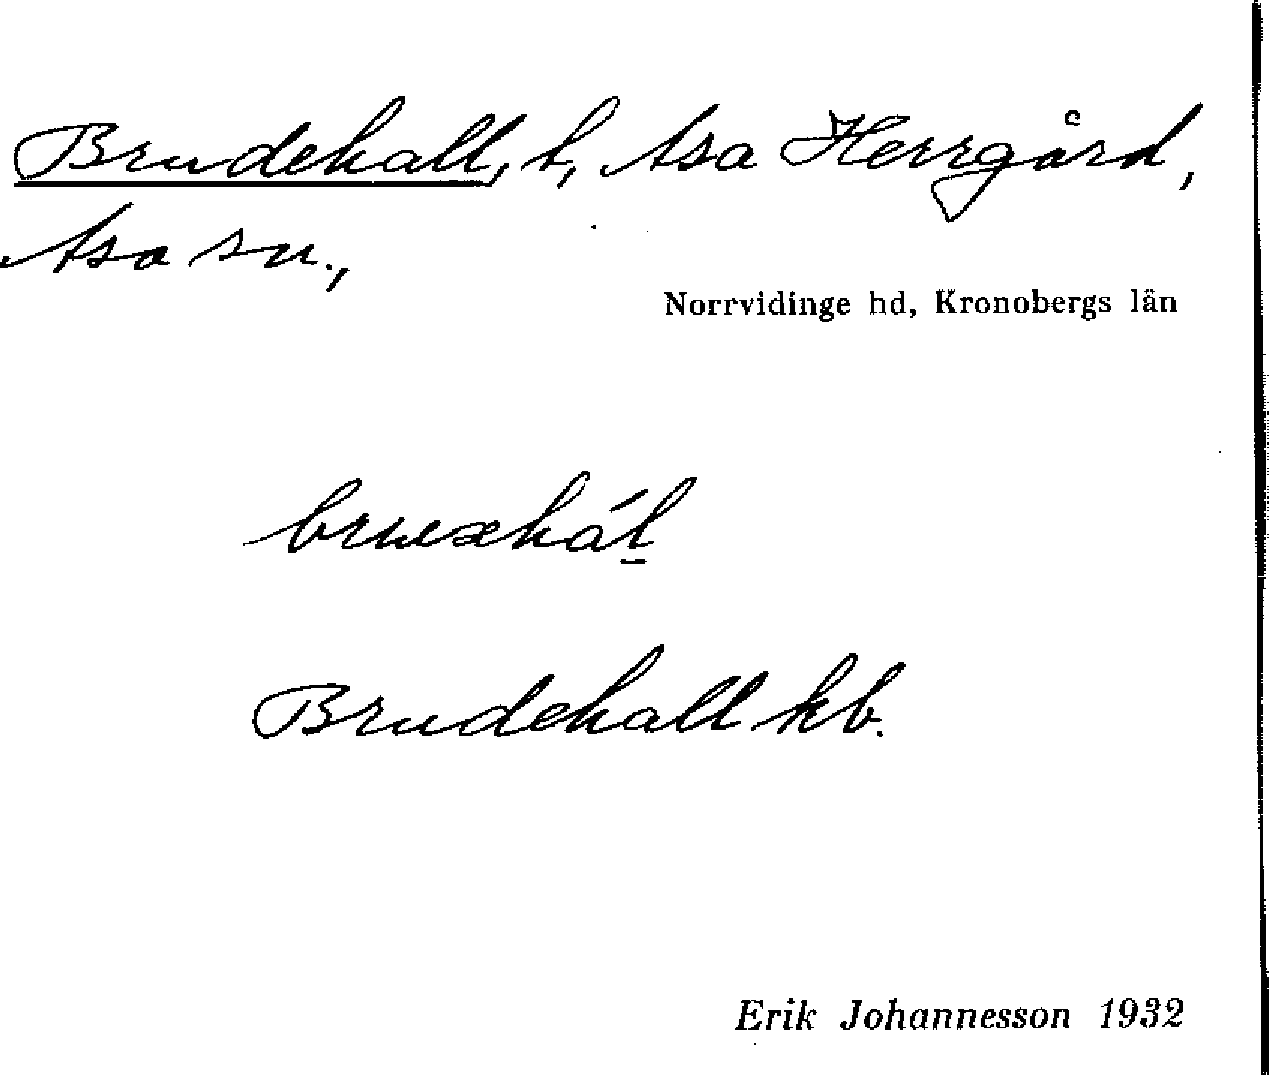 Brudehall, t, Asa Herrgård,
Asa sn.,
Norrvidinge hd, Kronobergs län
bruæhál̲
Brudehall kb.
Erik Johannesson 1932